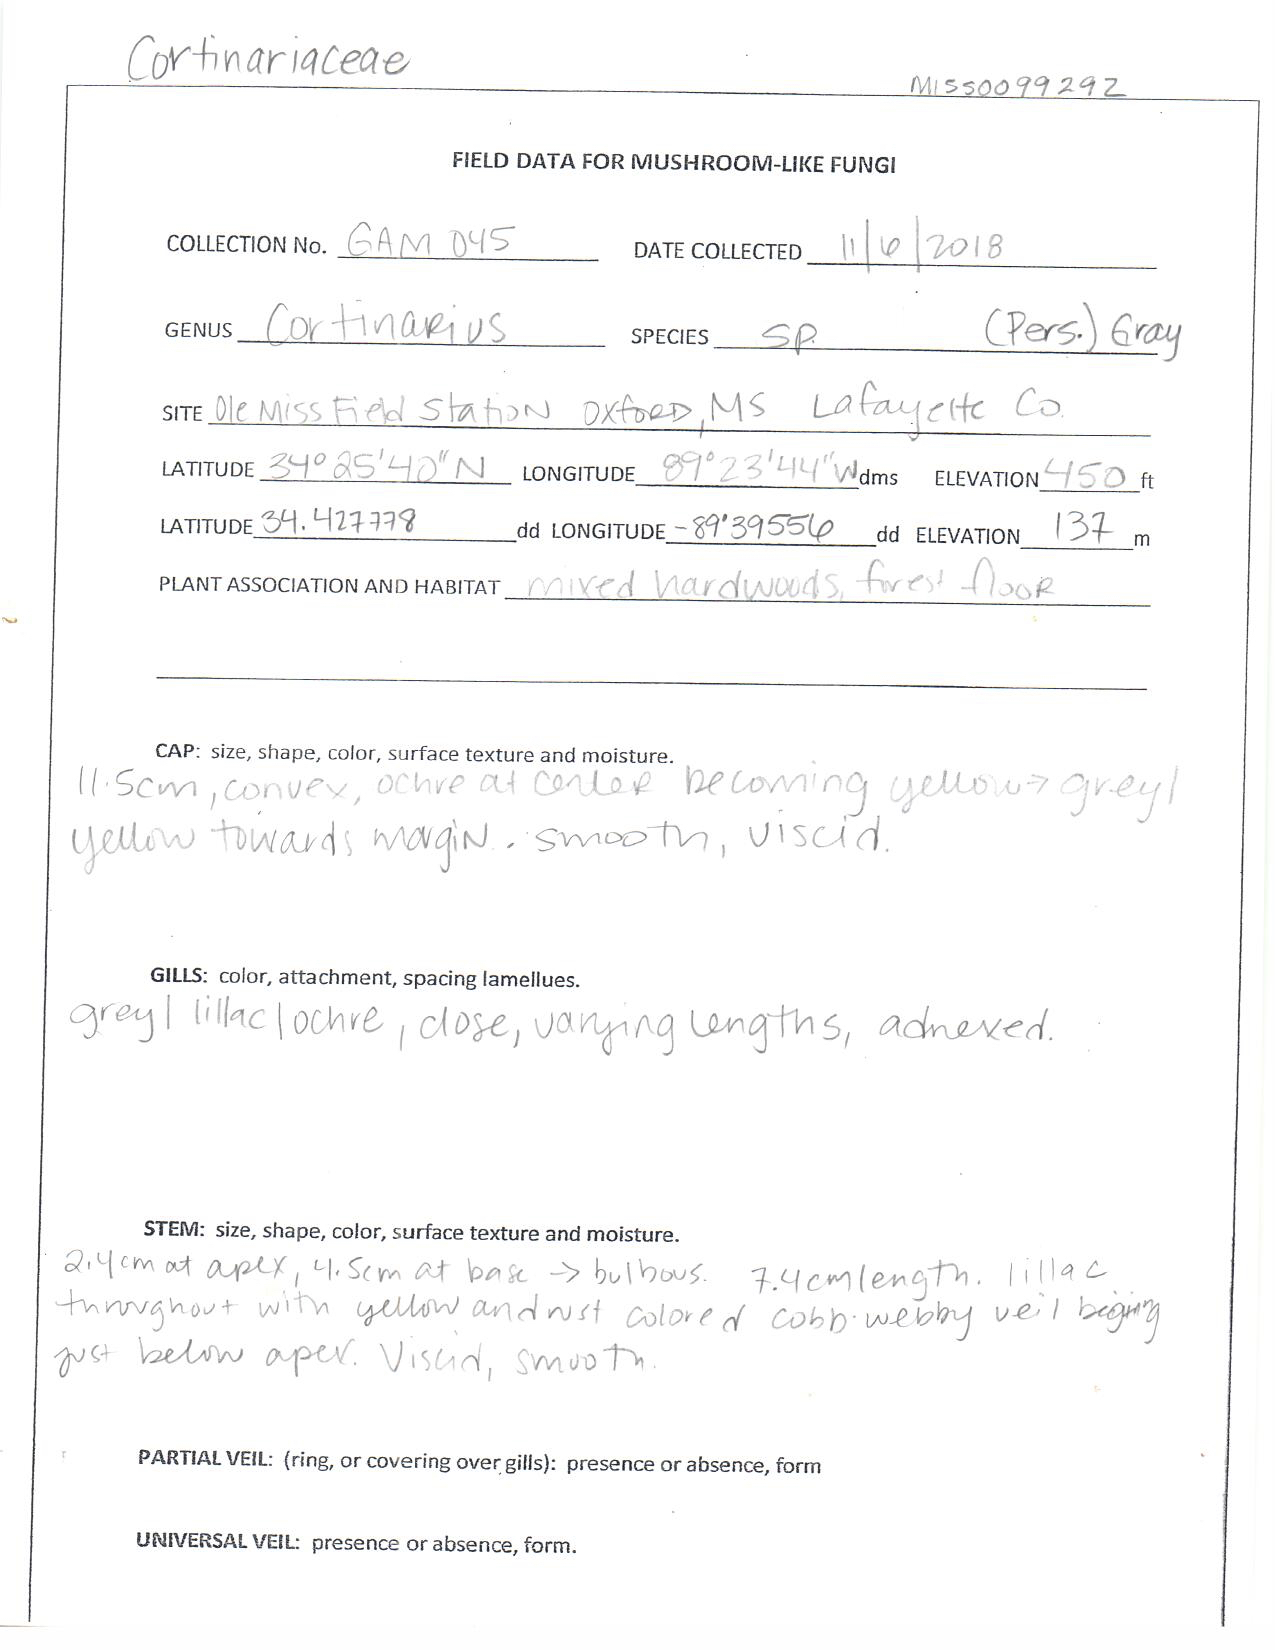 Cortinariaceae
MISS0099292
FIELD DATA FOR MUSHROOM-LIKE FUNGI
COLLECTION No. GAM 045 DATE COLLECTED 11/6/2018
GENUS Cortinarius SPECIES sp. (Pers.) Gray
SITE Ole Miss Field Station Oxford, MS Lafayette Co.
LATITUDE 34° 25' 40" N LONGITUDE 89° 23' 44" W dms ELEVATION 450 ft
LATITUDE 34.427778 dd LONGITUDE -89.39556 dd ELEVATION 137 m
PLANT ASSOCIATION AND HABITAT mixed hardwoods, forest floor
CAP: size, shape, color, surface texture and moisture.
11.5cm, convex, ochre at center becoming yellow → grey/
yellow towards margin. smooth, viscid.
GILLS: color, attachment, spacing lamellues.
grey/lillac/ochre, close, varying lengths, adnexed.
STEM: size, shape, color, surface texture and moisture.
2.4cm at apex, 4.5cm at base → bulbous. 7.4cm length. lillac
throughout with yellow and rust colored cobb-webby veil
just below apex. Viscid, smooth.
PARTIAL VEIL: (ring, or covering over gills): presence or absence, form
UNIVERSAL VEIL: presence or absence, form.